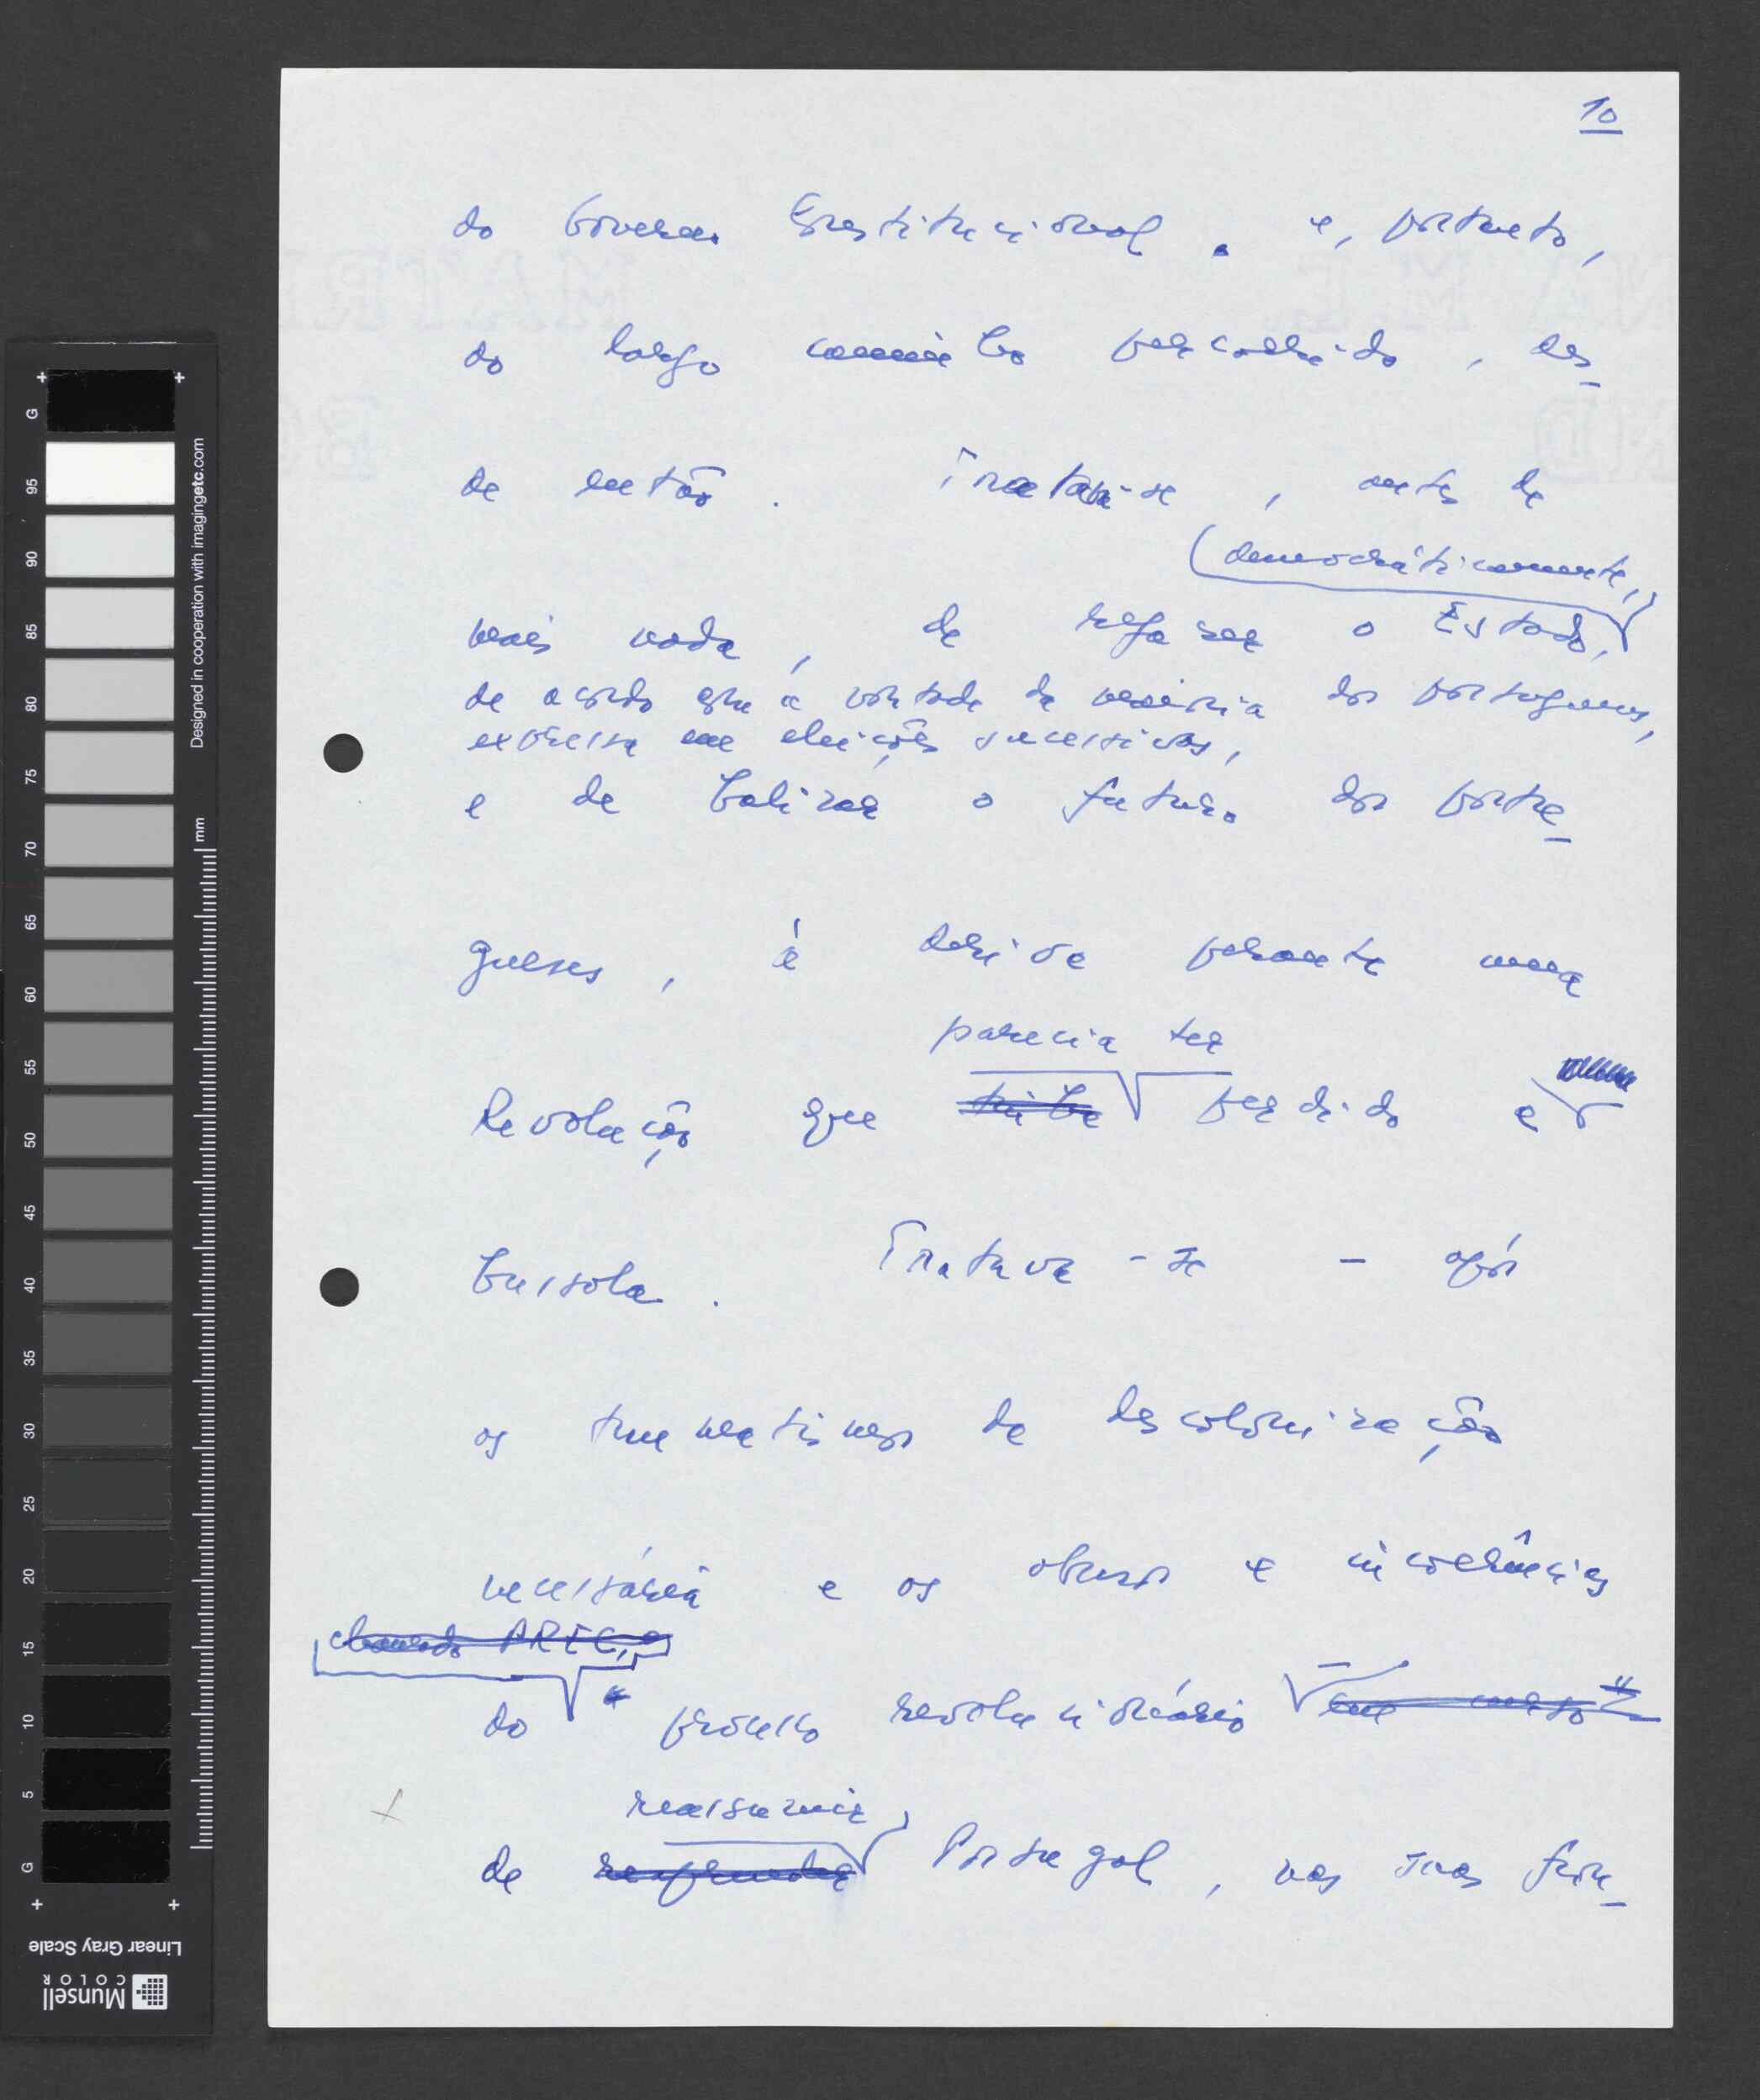 10
do Governo Constitucional. e, portanto,
do largo caminho percorrido, des-
de então. Tratava-se, antes de
democràticamente,
mais nada, de refazer o Estado,
de acordo com a vontade da maioria dos portugueses,
expressa em eleições sucessivas,
e de balizar o futuro dos portu-
gueses, à deriva perante uma
parecia ter
Revolução que tinha perdido a
bussola. Tratava-se - após
os traumatismos da descolonização
necessária e os abusos e incoerências
chamado PREC, o
do processo revolucionário em curso"
reassumir
de Portugal, nas suas fron-
G 95 90 85 80 75 70 65 60 55 50 45 40 35 30 25 20 15 10 5 G
mm
Designed in cooperation with imagingetc.com
Linear Gray Scale
Munsell
COLOR